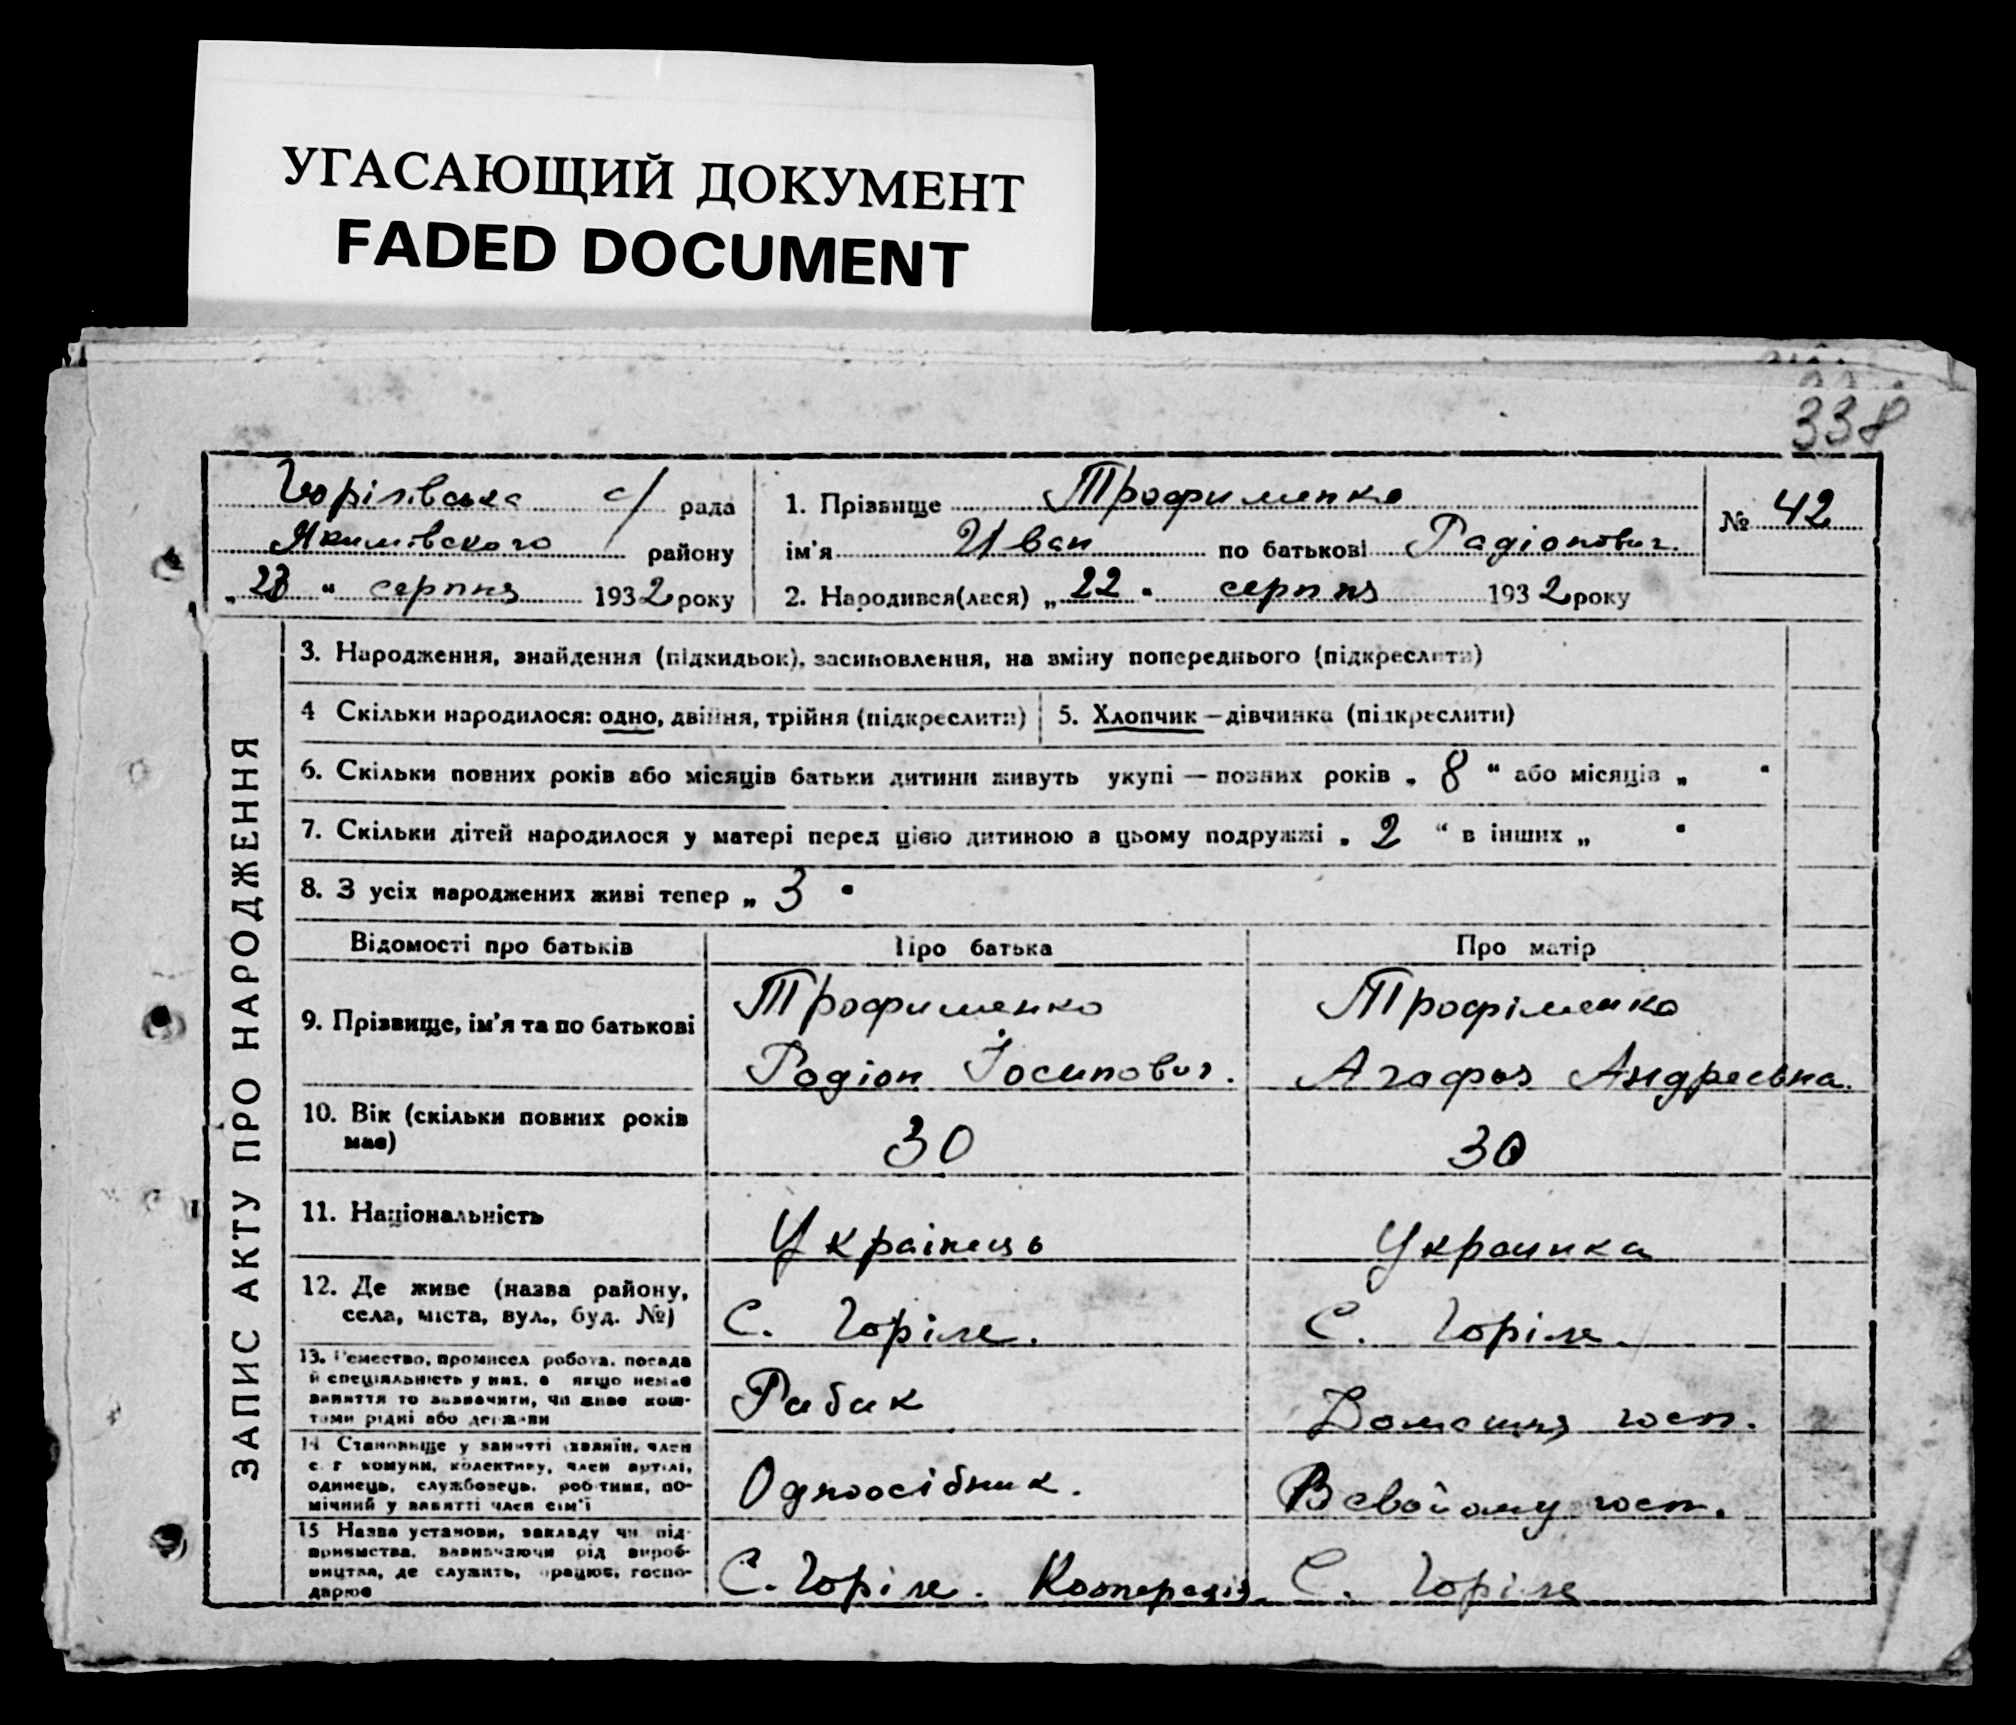 УГАСАЮЩИЙ ДОКУМЕНТ
FADED DOCUMENT
338
Горілівська с/ рада
Якимівского району
„ 23 “ серпня 1932 року
1. Прізвище Трофименко
ім'я Иван по батькові Радіонович.
2. Народився(лася) „ 22 “ серпня 1932 року
№ 42
ЗАПИС АКТУ ПРО НАРОДЖЕННЯ
3. Народження, знайдення (підкидьок), засиновлення, на зміну попереднього (підкреслити)
4 Скільки народилося: одно, двійня, трійня (підкреслити)
5. Хлопчик — дівчинка (підкреслити)
6. Скільки повних років або місяців батьки дитини живуть укупі — повних років „ 8 “ або місяців „ “
7. Скільки дітей народилося у матері перед цією дитиною в цьому подружжі „ 2 “ в інших „ “
8. З усіх народжених живі тепер „ 3 “
Відомості про батьків Про батька Про матір
9. Прізвище, ім'я та по батькові
Трофименко
Родіон Йосипович.
Трофіменко
Агафья Андреевна.
10. Вік (скільки повних років
має)
30
30
11. Національність
Українець
Украинка
12. Де живе (назва району,
села, міста, вул., буд. №)
С. Горіле.
С. Горіле.
13. Ремество, промисел, робота, посада
й спеціяльність у них, а якщо немає
заняття то зазначити, чи живе кош-
тами рідні або держави
Рибак
Домашня госп.
14 Становище у занятті (хазяїн, член
с. г. комуни, колективу, член артілі,
одинець, службовець, робітник, по-
мічний у занятті член сім'ї
Одноосібник.
В свойому госп.
15 Назва установи, закладу чи під-
приємства, зазначаючи рід вироб-
ництва, де служить, працює, госпо-
дарює
С. Горіле. Кооперація.
С. Горіле